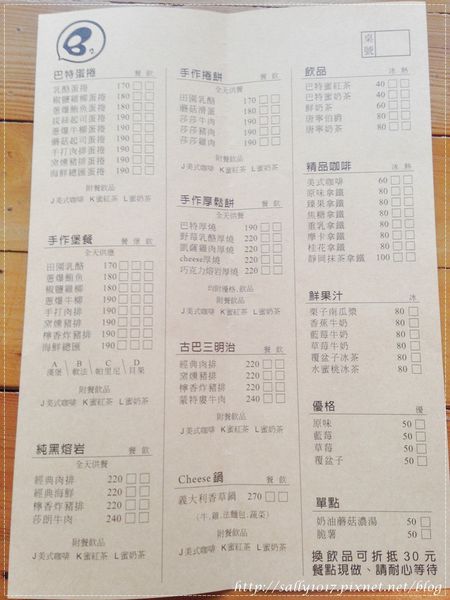 桌號
巴特蛋捲 餐 飲
乳酪蛋捲 170
椒鹽雞柳蛋捲 180
蔥爆鮪魚蛋捲 180
蔥爆牛柳蛋捲 190
蘑菇起司蛋捲 190
手打肉排蛋捲 190
窯燻豬排蛋捲 190
海鮮總匯蛋捲 190
附餐飲品
J美式咖啡 K蜜紅茶 L蜜奶茶
手作堡餐 餐 堡 飲
全天供應
田園乳酪 170
蔥爆鮪魚 180
椒鹽雞柳 180
蔥爆牛柳 190
手打肉排 190
窯燻豬排 190
檸香炸豬排 190
海鮮總匯 190
A B C D
漢堡 軟法 帕里尼 貝果
附餐飲品
J美式咖啡 K蜜紅茶 L蜜奶茶
純黑熔岩 餐 飲
全天供餐
經典肉排 220
經典海鮮 220
檸香炸豬排 220
莎朗牛肉 240
附餐飲品
J美式咖啡 K蜜紅茶 L蜜奶茶
手作捲餅 餐 飲
全天供餐
田園乳酪 180
蘑菇滑蛋 180
莎莎牛肉 190
莎莎豬肉 190
莎莎雞肉 190
附餐飲品
J美式咖啡 K蜜紅茶 L蜜奶茶
手作厚鬆餅 餐 飲
巴特厚燒 190
野莓乳酪厚燒
凱薩雞肉厚燒
cheese厚燒
巧克力熔岩厚燒
均附優格、飲品
J美式咖啡 K蜜紅茶 L蜜奶茶
古巴三明治 餐 飲
經典肉排 220
窯燻豬排 220
檸香炸豬排 220
蒙特婁牛肉 240
附餐飲品
J美式咖啡 K蜜紅茶 L蜜奶茶
Cheese鍋 餐 飲
義大利香草鍋 270
(牛、雞、法麵包、蔬菜)
附餐飲品
J美式咖啡 K蜜紅茶 L蜜奶茶
飲品 冰 熱
巴特蜜紅茶 40
巴特蜜奶茶 40
鮮奶茶 60
唐寧伯爵
唐寧奶茶
精品咖啡 冰 熱
美式咖啡 60
原味拿鐵 80
榛果拿鐵 80
焦糖拿鐵 80
重乳拿鐵 80
摩卡拿鐵 80
桂花拿鐵 80
靜岡抹茶拿鐵 80
鮮果汁 冰
栗子南瓜漿 80
香蕉牛奶 80
藍莓牛奶 80
草莓牛奶 80
覆盆子冰茶 80
水蜜桃冰茶 80
優格 優
原味 50
藍莓 50
草莓 50
覆盆子 50
單點
奶油蘑菇濃湯 50
脆薯 50
換飲品可折抵30元
餐點現做、請耐心等待
http://sally1017.pixnet.net/blog